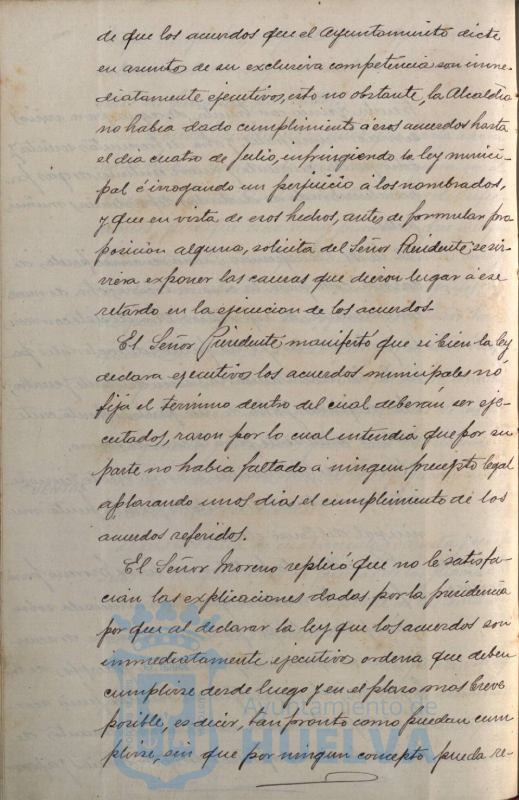 de que los acuerdos que el Ayuntamiento dicte
en asuntos de su exclusiva competencia son inme-
diatamente ejecutivos, esto no obstante, la Alcaldia
no habia dado cumplimiento á esos acuerdos hasta
el dia cuatro de Julio, infringiendo la ley munici-
pal é irrogando un perjuicio á los nombrados,
y que en vista de esos hechos, antes de formular pro
posicion alguna, solicita del Señor Presidente se sir-
viera exponer las causas que dieron lugar á ese
retardo en la ejecucion de los acuerdos.
El Señor Presidente manifestó que si bien la ley
declara ejecutivos los acuerdos municipales nó
fija el termino dentro del cual deberán ser eje-
cutados, razon por lo cual entendia que por su
parte no habia faltado á ningun precepto legal
aplazando unos dias el cumplimiento de los
acuerdos referidos.
El Señor Moreno replicó que no le satisfa-
cian las explicaciones dadas por la presidencia
por que al declarar la ley que los acuerdos son
inmediatamente ejecutivos ordena que deben
cumplirse desde luego y en el plazo mas breve
posible, es decir, tan pronto como puedan cum-
plirse, sin que por ningun concepto pueda re-
Ayuntamiento de
HUELVA